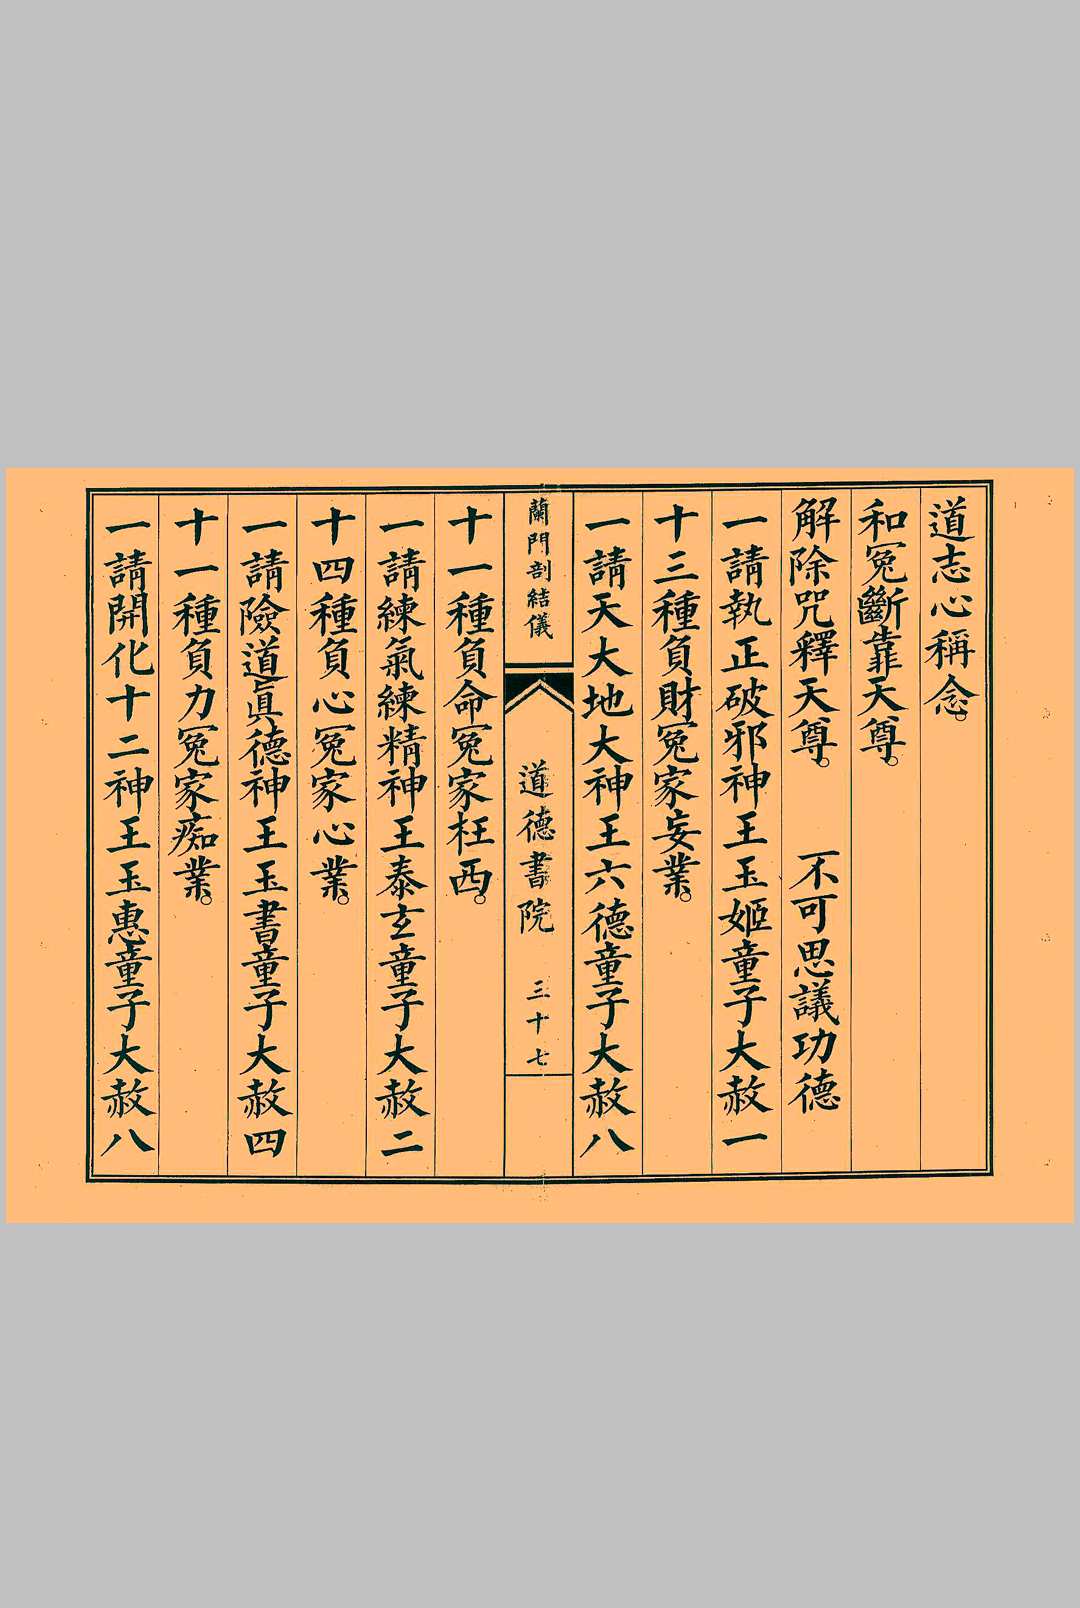 道志心稱念。
和冤斷靠天尊。
解除咒釋天尊。 不可思議功德
一請執正破邪神王玉姬童子大赦一
十三種負財冤家妄業。
一請天大地大神王六德童子大赦八
蘭門剖結儀
道德書院 三十七
十一種負命冤家枉西。
一請練氣練精神王泰玄童子大赦二
十四種負心冤家心業。
一請險道眞德神王玉書童子大赦四
十一種負力冤家痴業。
一請開化十二神王玉惠童子大赦八